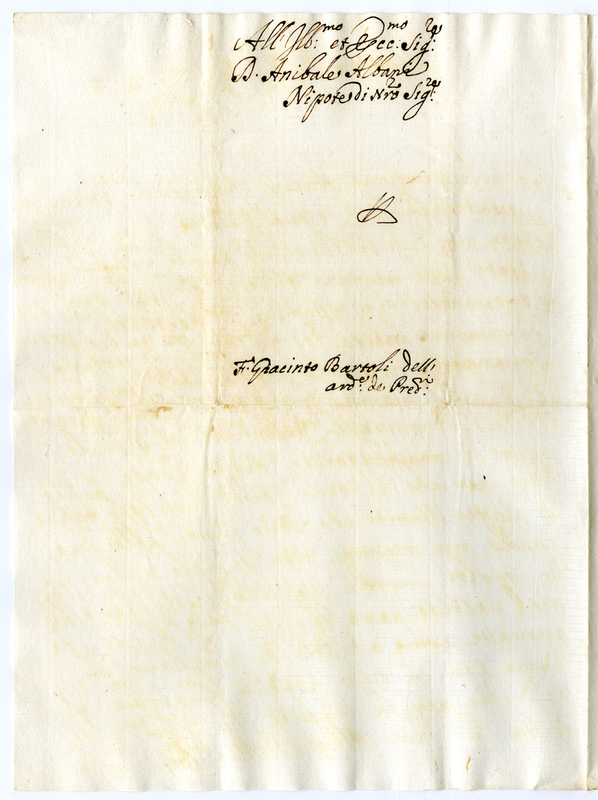 All' Ill:mo et Ecc:mo Sig:re
D. Anibale Albani
Nipote di Nro Sig:re
Fr. Giacinto Bartoli dell'
ord:e de Pred:ri